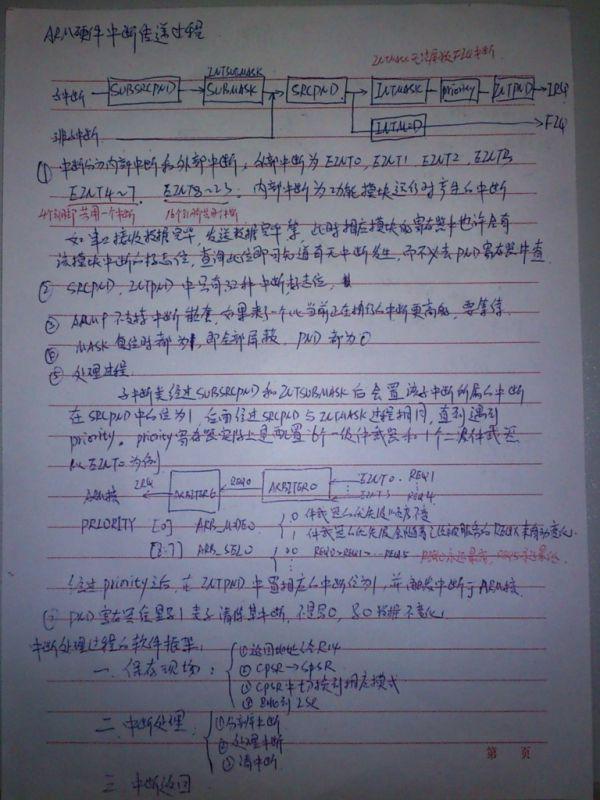 ARM硬件中断传送过程
INTMASK无法屏蔽FIQ中断
子中断 SUBSRCPND INTSUBMASK SUBMASK SRCPND INTMASK priority INTPND IRQ
非子中断 INTMOD FIQ
① 中断分为内部中断和外部中断,外部中断为EINT0、EINT1 EINT2、EINT3
EINT4~7、EINT8~23、内部中断为功能模块运行时产生的中断
4个引脚共用一个中断 16个引脚共用中断
如串口接收数据完毕、发送数据完毕等,此时相应模块的寄存器中也许会有
该模块中断的标志位,查询此位即可知道有无中断发生,而不必去PND寄存器中查
② SRCPND、INTPND中只有32种中断标志位,
③ ARM不支持中断嵌套,如果来了一个比当前正在执行的中断更高的,要等待
④ MASK复位时都为1,即全部屏蔽,PND都为0
⑤ 处理过程
子中断类经过SUBSRCPND和INTSUBMASK后会置该子中断所属的中断
在SRCPND中的位为1,后面经过SRCPND与INTMASK过程相同,直到遇到
priority。priority寄存器实际上是配置6个一级仲裁器和1个二级仲裁器
以EINT0为例
ARM核 IRQ ARBITER6 REQ0 ARBITER0 EINT0 REQ1
EINT3 REQ4
PRIORITY [0] ARB_MODE0 0 仲裁器的优先级顺序不变
1
[8:7] ARB_SEL0 00 REQ0>REQ1>…REQ5
经过priority之后,在INTPND中置相应的中断位为1,并触发中断于ARM核
PND寄存器位置写1表示清除某中断,不写0,写0数据不变化
中断处理过程的软件框架:
一、保存现场: ①返回地址给R14
②CPSR→SPSR
③CPSR中切换到相应模式
④跳到ISR
二、中断处理 ①分辨中断
②处理中断
③清中断
三、中断返回
第 页